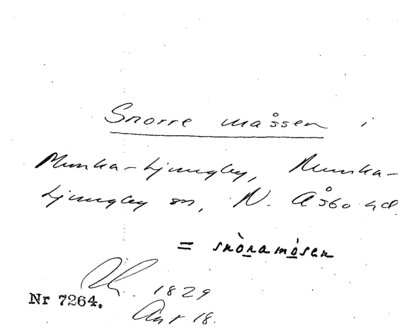 Snorre måssen i
Munka-Ljungby, Munka-
Ljungby sn, N. Åsbo hd.
= snòramósen
1829
Nr 7264.
18.